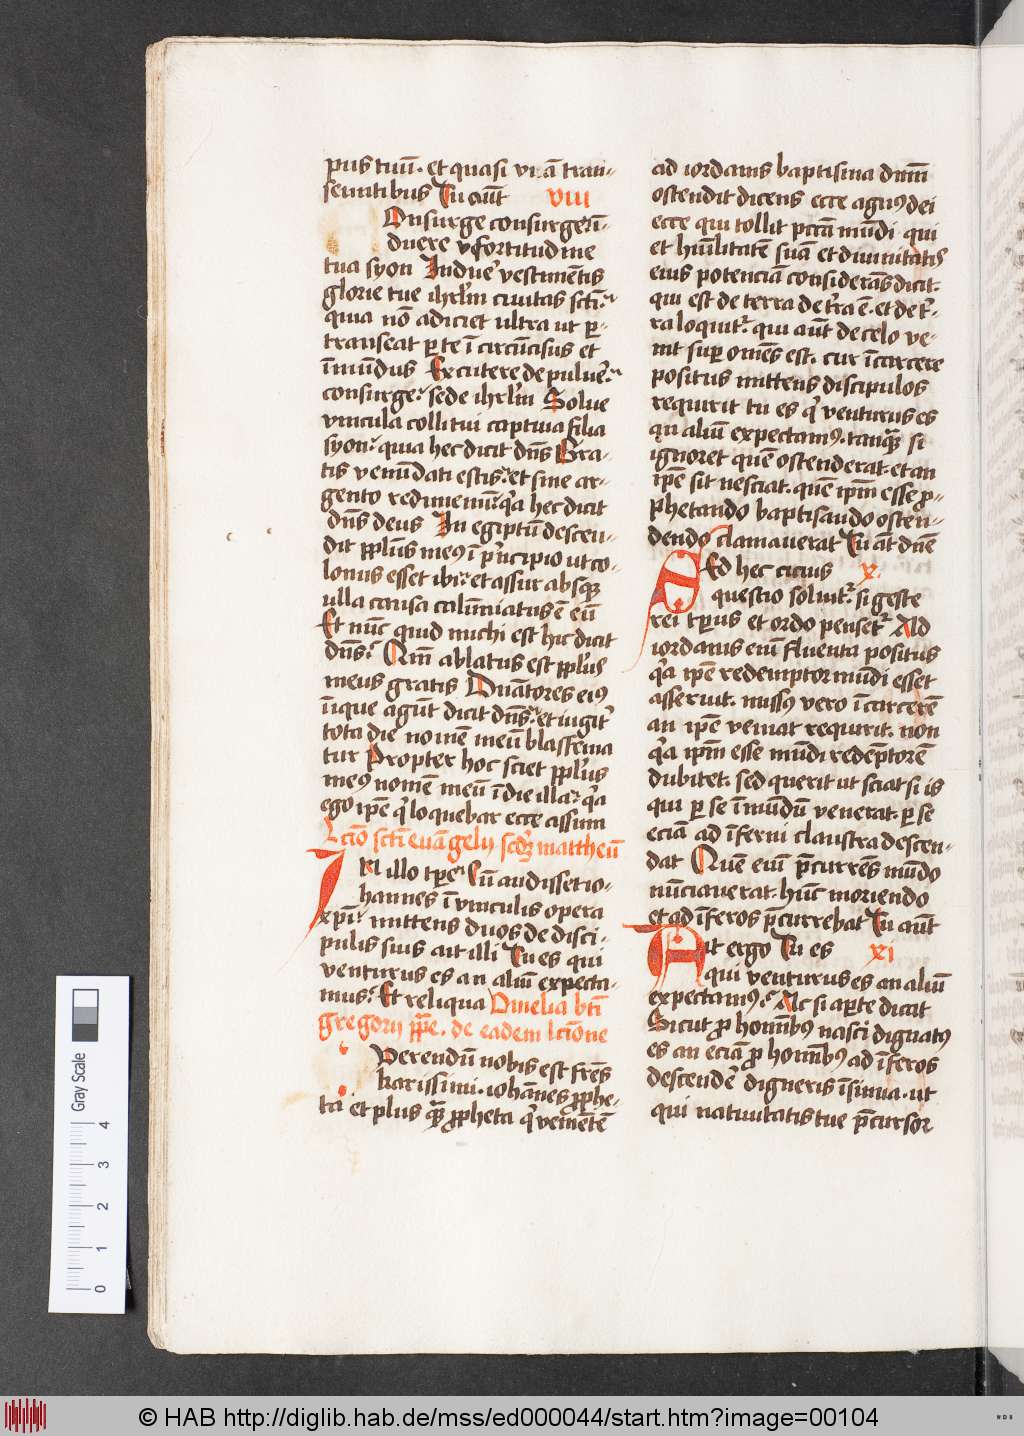 pus tuū. et quasi viā tran-
seuntibus Tu aūt viii
Onsurge consurge īn-
duere fortitudine
tua syon Induē vestimētis
glorie tue ihrlm civitas scti
quia nō adiciet ultra ut p-
transeat p te ī circūcisus et
īmūndus Excutere de puluē
consurge sede ihrlm Solue
vincula colli tui captiua filia
syon quia hec dicit dns Gra-
tis venūdati estis et sine ar-
gento redimemī qa hec dicit
dns deus In egiptū descen-
dit pplus meus ī pncipio ut co-
lonus esset ibi et assur absqꝫ
ulla causa calūniatus ē eū
Et nūc quid michi est hic dicit
dns Qm ablatus est pplus
meus gratis Duātores eiꝰ
īnque agūt dicit dns et iugit
tota die nomē meū blasfema
tur Propter hoc sciet pplus
meꝰ nomē meū ī die illa qa
ego ipē q loquebar ecce assum
Lcio scti euāgelij scdꝫ mattheū
N illo tpe Cū audisset io-
hannes ī vinculis opera
xpi mittens duos de disci-
pulis suis ait illi Tu es qui
venturus es an aliū expecta-
mus Et reliqua Omelia bti
gregorij ppe. de eadem lcione
Verendū nobis est frēs
karissimi. iohānes pphe-
ta et plus qꝫ ppheta q veniētē
ad iordanis baptisma dnm
ostendit dicens ecce agnus dei
ecce qui tollit pctā mūdi. qui
et hūilitatē suā et diuinitatis
eius potenciā considerās dicit.
qui est de terra de tra ē. et de t-
ra loquit. qui aūt de celo ve-
nit sup omēs est. cur ī carcere
positus mittens discipulos
requirit tu es q venturus es
an aliū expectamꝰ. tanqꝫ si
ignoret quē ostenderat. et an
ipē sit nesciat. quē ipm esse p-
phetando baptisando osten-
dendo clamauerat Tu aūt dnē
Sed hec cicius x.
questio soluit. si geste
rei tpus et ordo penset Ad
iordanis eni fluenta positus
qa ipē redemptor mūdi esset
asseruit. missꝰ vero ī carcerē
an ipē veniat requirit. non
qa ipm esse mūdi redēptorē
dubitet. sed querit ut sciat si is
qui p se ī mūdū venerat. p se
eciā ad īferni claustra descen-
dat Quē eni pcurrēs mūdo
nūciauerat. hūc moriendo
et ad īferos pcurrebat Tu aūt
Ait ergo Tu es xi
qui venturus es an aliū
expectamꝰ. Ac si apte dicat
Sicut p homībus nasci dignatꝰ
es an eciā p homībus ad īferos
descendē digneris īsinua. ut
qui natiuitatis tue pcursor
© HAB http://diglib.hab.de/mss/ed000044/start.htm?image=00104
Gray Scale
0 1 2 3 4